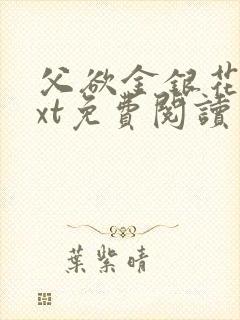 父欲金银花
xt免費閱讀
葉紫晴